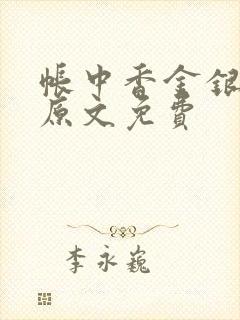 帐中香金银
原文免费
李永巍